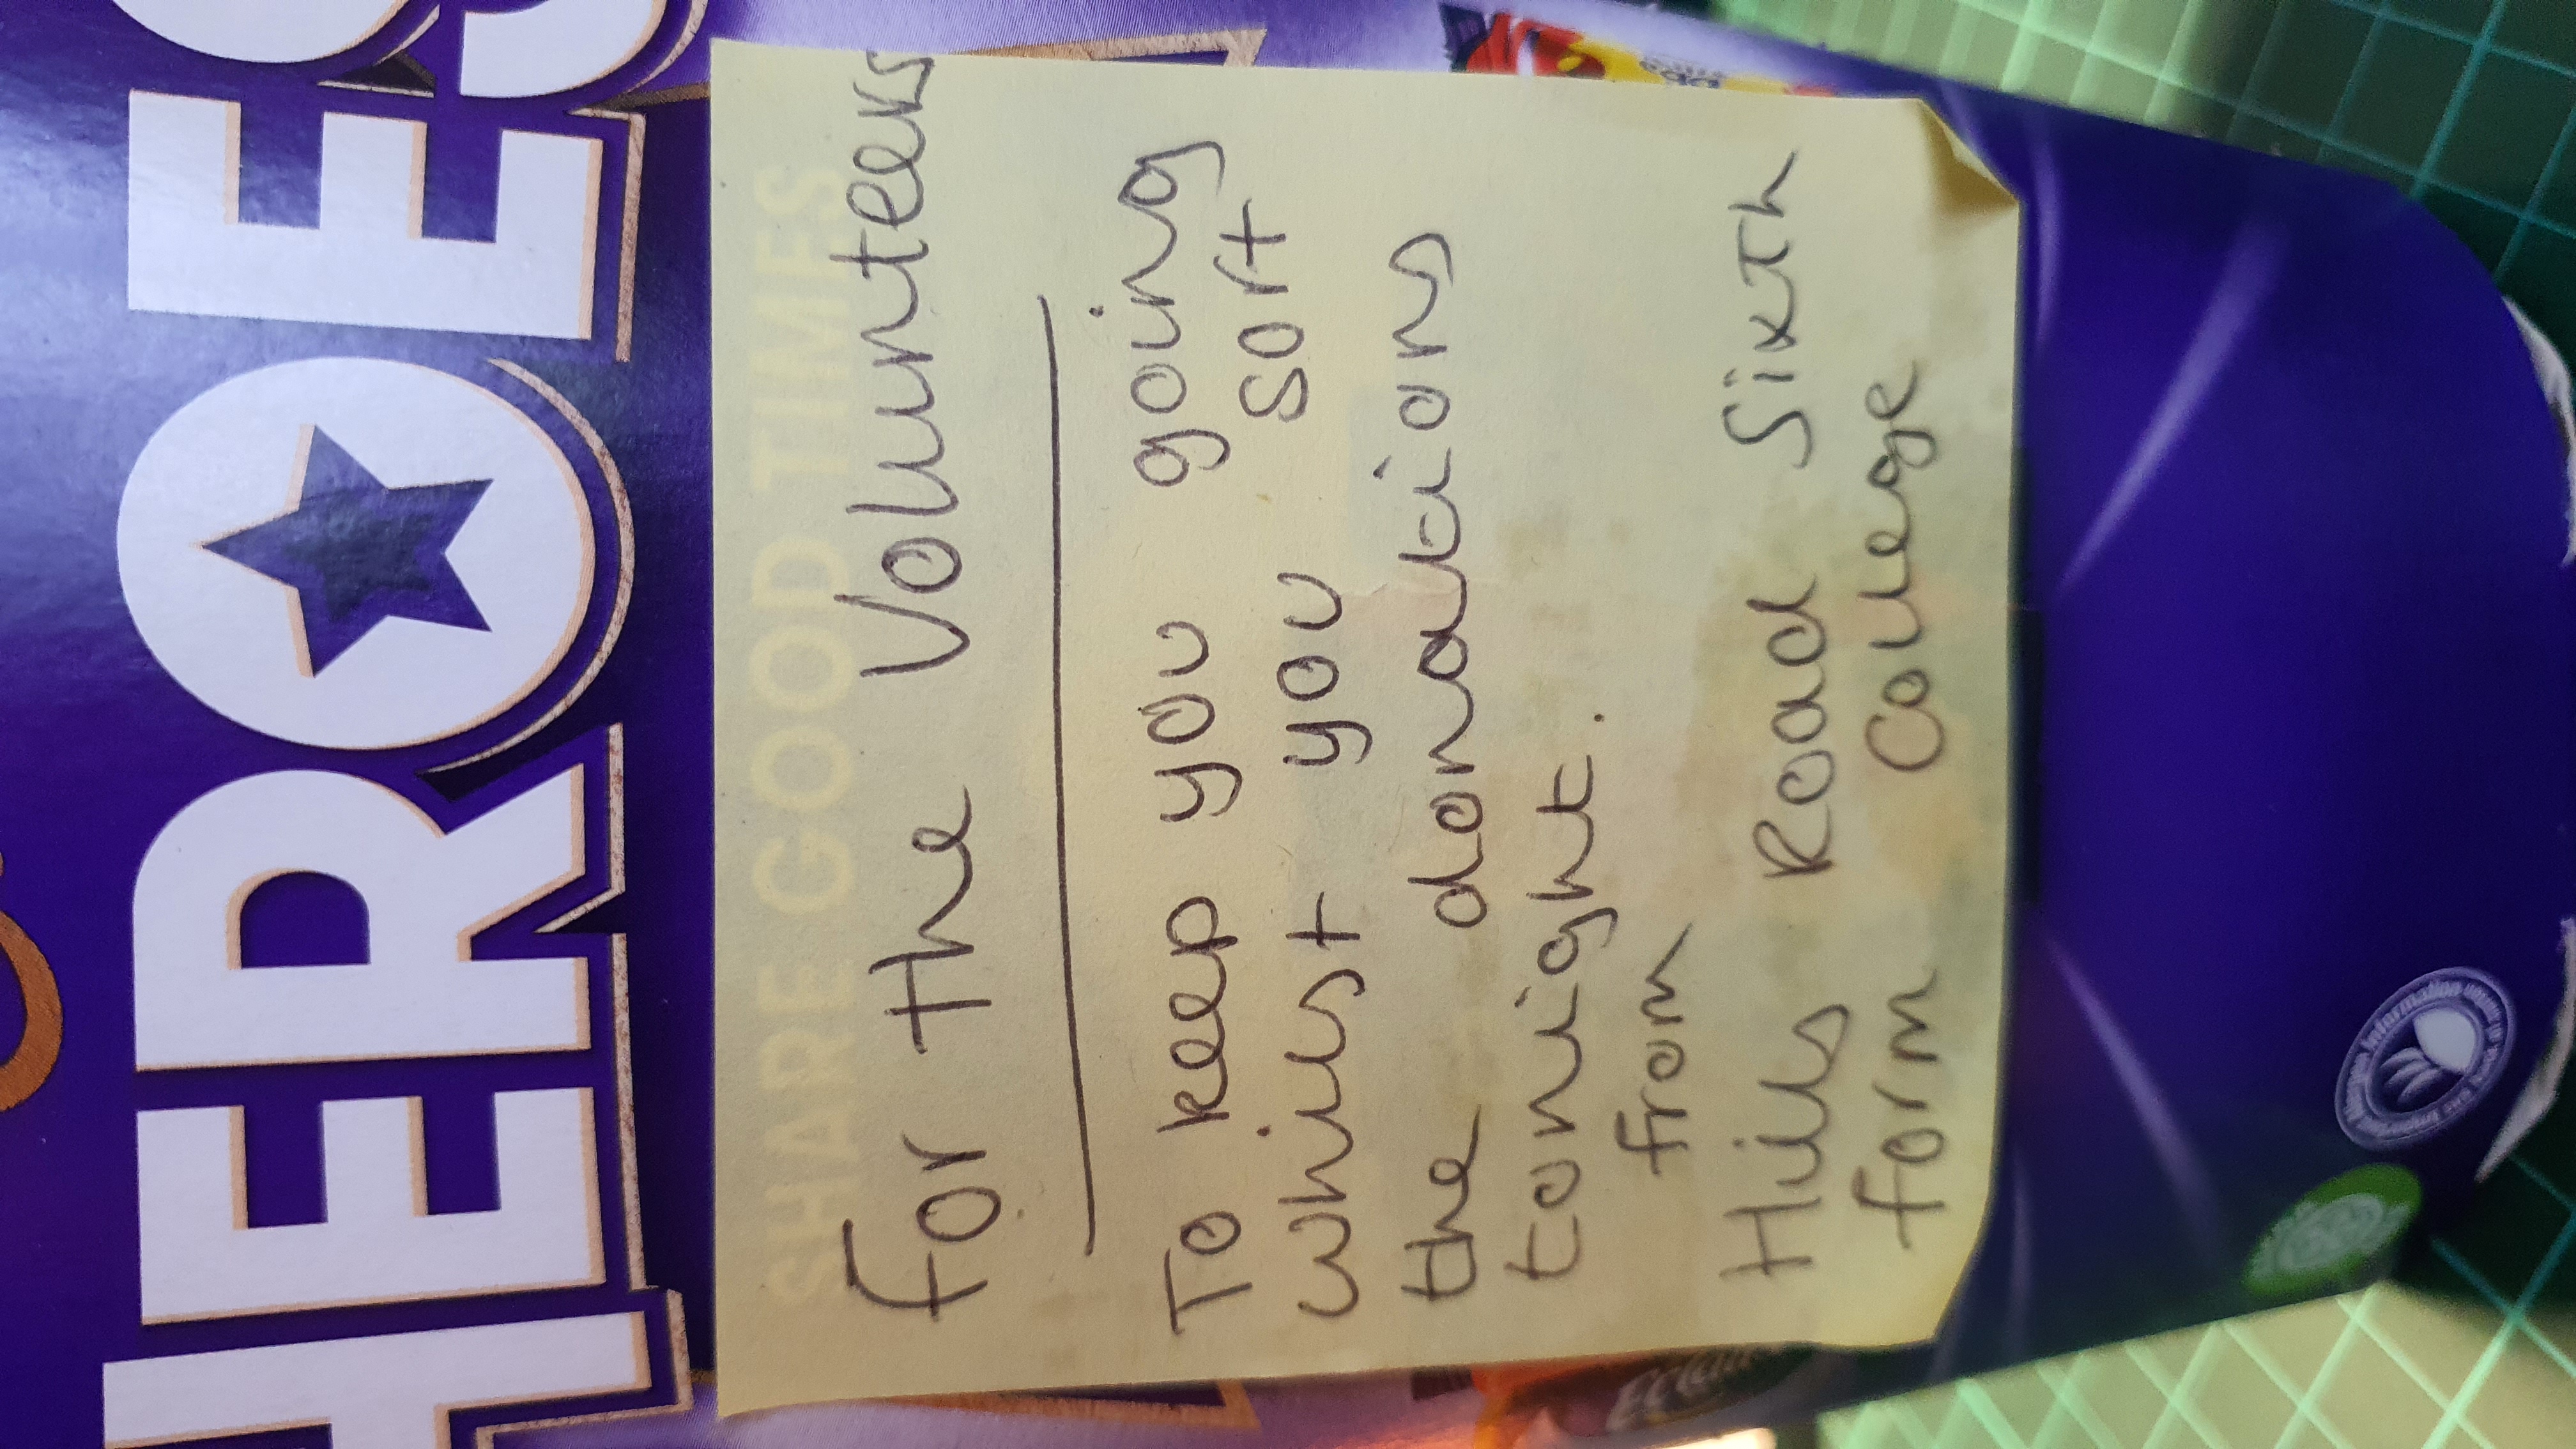 HEROES
SHARE GOOD TIMES
For the Volunteers
To keep you going
whilst you sort
the donations
tonight.
from
Hills Road Sixth
form College